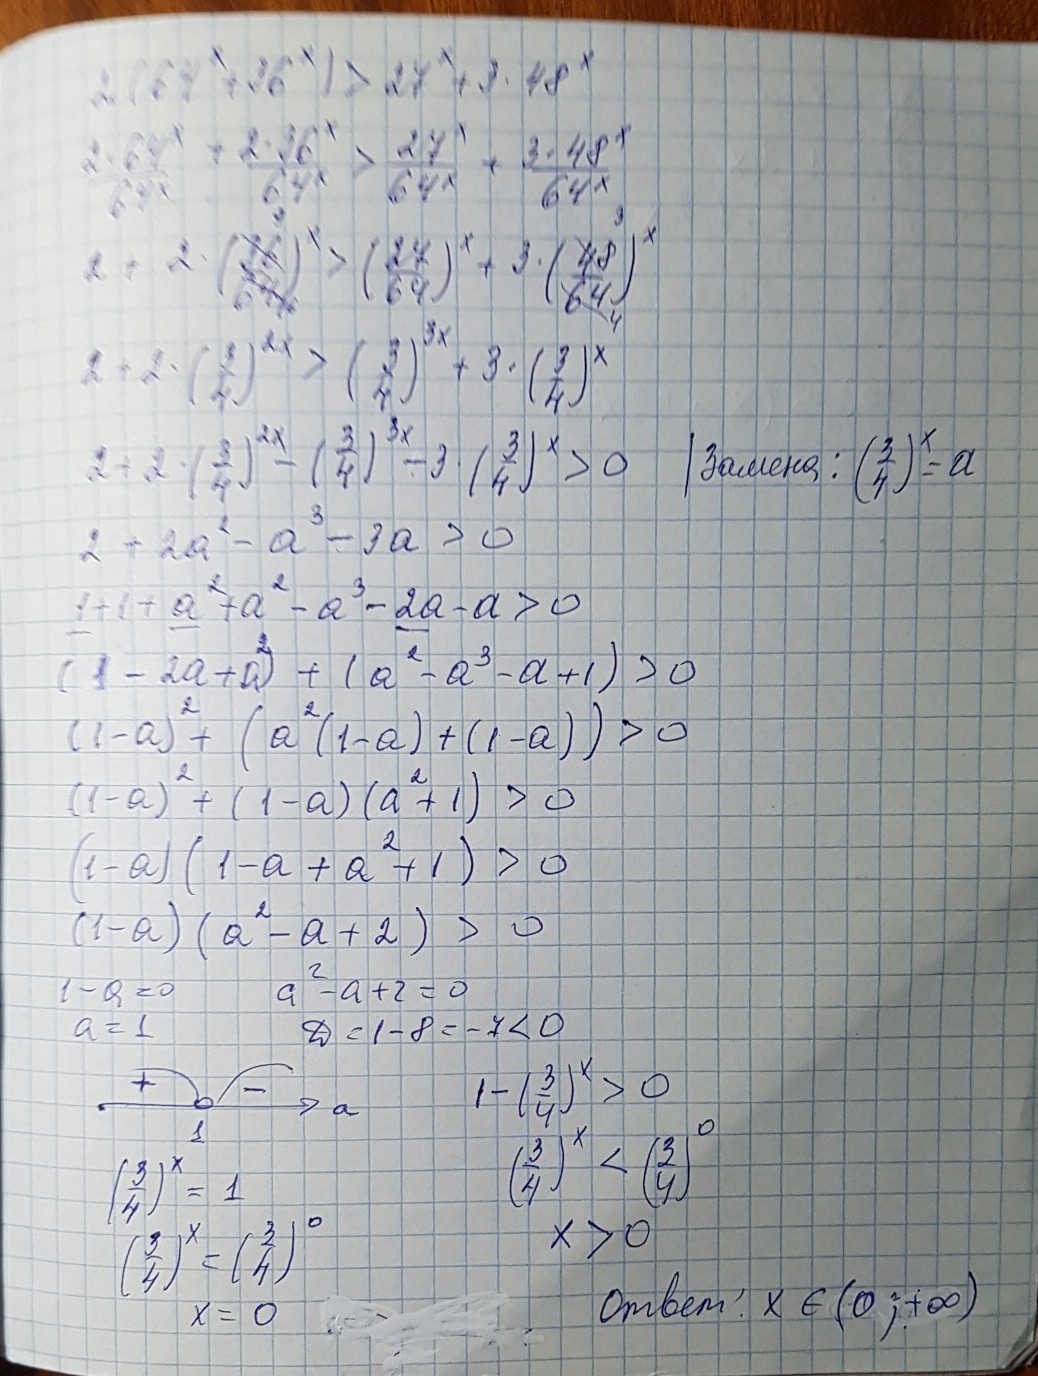 2(64^x + 36^x) > 27^x + 3·48^x
2·64^x/64^x + 2·36^x/64^x > 27^x/64^x + 3·48^x/64^x
2 + 2·(36/64)^x > (27/64)^x + 3·(48/64)^x
2 + 2·(3/4)^2x > (3/4)^3x + 3·(3/4)^x
2 + 2·(3/4)^2x − (3/4)^3x − 3·(3/4)^x > 0 | Замена: (3/4)^x = a
2 + 2a² − a³ − 3a > 0
1 + 1 + a² + a² − a³ − 2a − a > 0
(1 − 2a + a²) + (a² − a³ − a + 1) > 0
(1−a)² + (a²(1−a) + (1−a)) > 0
(1−a)² + (1−a)(a² + 1) > 0
(1−a)(1 − a + a² + 1) > 0
(1−a)(a² − a + 2) > 0
1 − a = 0 a² − a + 2 = 0
a = 1 D = 1 − 8 = −7 < 0
+ − a 1 − (3/4)^x > 0
1
(3/4)^x = 1 (3/4)^x < (3/4)^0
(3/4)^x = (3/4)^0 x > 0
x = 0 Ответ: x ∈ (0; +∞)